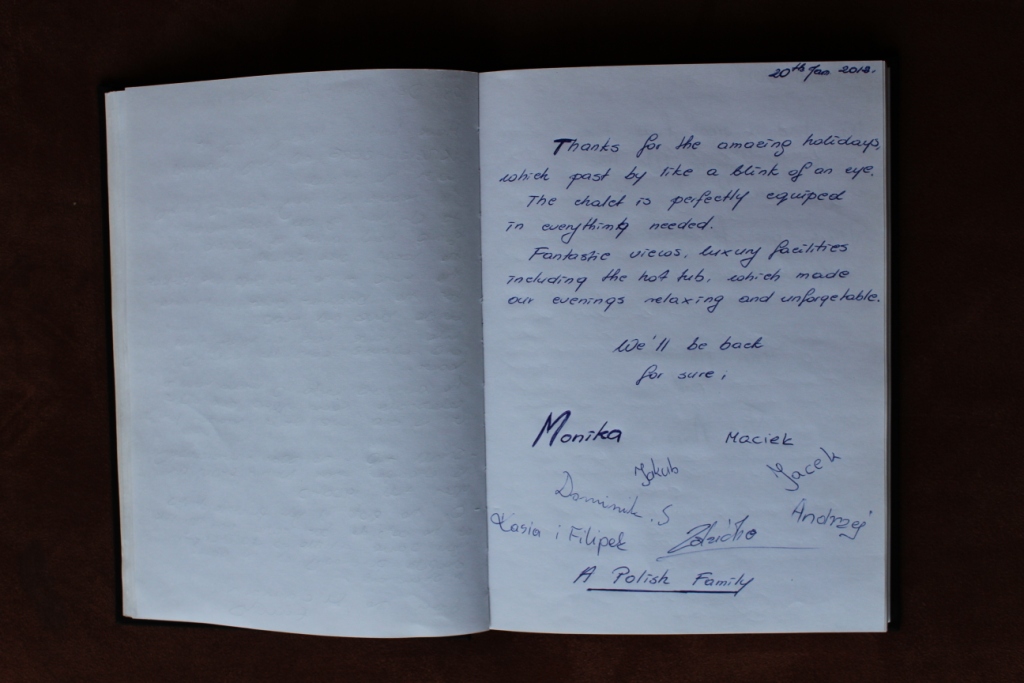 20th Jan 2012.
Thanks for the amazing holidays,
which past by like a blink of an eye.
The chalet is perfectly equiped
in everything needed.
Fantastic views, luxury facilities
including the hot tub, which made
our evenings relaxing and unforgetable.
We'll be back
for sure,
Monika Maciek
Jakub Jacek
Dominik.S Andrzej
Kasia i Filipek
A Polish Family